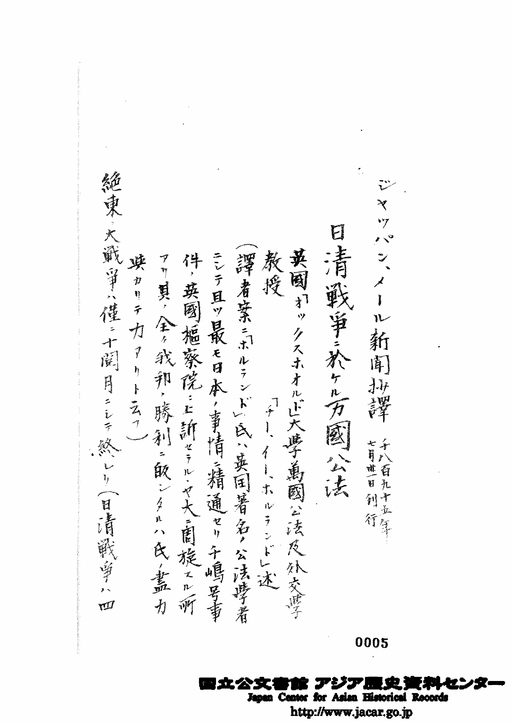 ジャッパン、メール新聞抄譯 千八百九十五年
七月卅一日刊行
日清戰爭ニ於ケル万國公法
英國「オックスホオルド」大學萬國公法及外交學
教授 「チー、イー、ホルランド」述
(譯者案ニ「ホルランド」氏ハ英国著名ノ公法學者
ニシテ且ツ最モ日本ノ事情ニ精通セリ千嶋号事
件ノ英國樞密院ニ上訴セラルヽヤ大ニ周旋スル所
アリ其ノ全ク我邦ノ勝利ニ皈シタルハ氏ノ盡力
與カリテ力アリト云フ)
絶東ノ大戰爭ハ僅ニ十閱月ニシテ終レリ(日清戰爭ハ四
0005
国立公文書館 アジア歴史資料センター
Japan Center for Asian Historical Records
http://www.jacar.go.jp